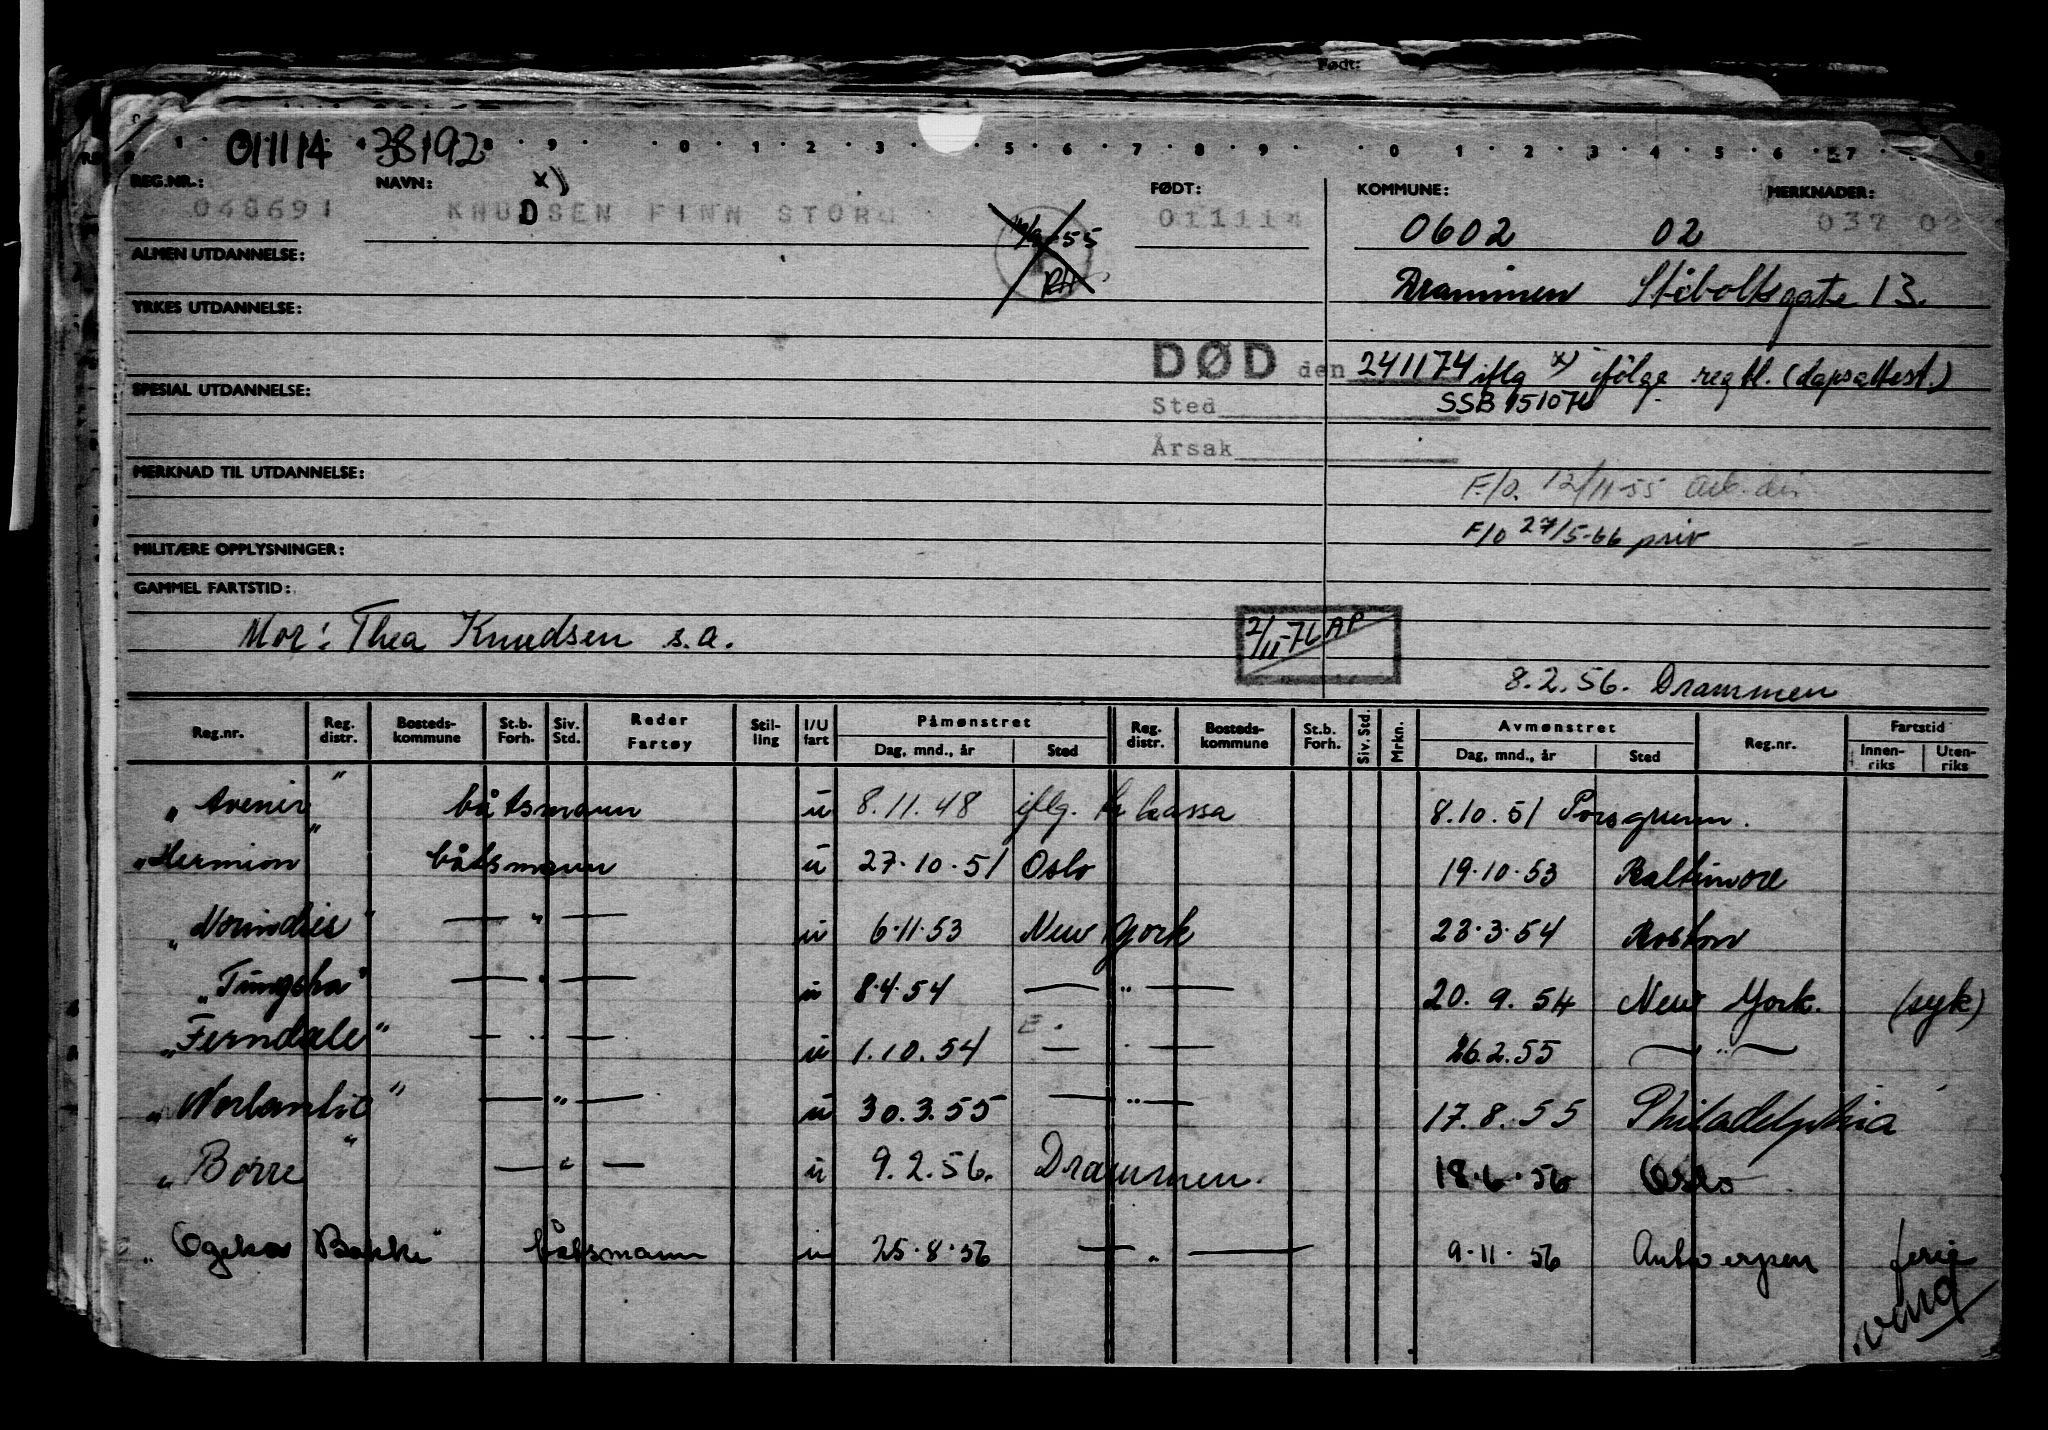 Født:
011114 38192
REG.NR.: NAVN: x) FØDT: KOMMUNE: MERKNADER:
068691 KNUDSEN FINN STORM 011114 0602 02 037 02
ALMEN UTDANNELSE:
Drammen Stiboltsgate 13.
YRKES UTDANNELSE:
DØD den 241174 iflg x) ifølge regbl. (dåpsattest.)
SPESIAL UTDANNELSE: Sted SSB 151076
Årsak
MERKNAD TIL UTDANNELSE:
F/o. 12/11-55 arb.dir
F/o 27/5-66 priv
MILITÆRE OPPLYSNINGER:
GAMMEL FARTSTID:
Mor: Thea Knudsen s.a. 2/11-76 AP
8.2.56. Drammen
Reg.nr. Reg. distr. Bosteds-kommune St.b. Forh. Siv. Std. Reder Fartøy Stil-ling I/U fart Påmønstret Dag, mnd., år Sted Reg. distr. Bosteds-kommune St.b. Forh. Siv. Std. Mrkn. Avmønstret Dag, mnd., år Sted Reg.nr. Fartstid Innen-riks Uten-riks
"Avenir" båtsmann u 8.11.48 iflg. kassa 8.10.51 Porsgrunn.
"Hermion" båtsmann u 27.10.51 Oslo 19.10.53 Baltimore
"Norindies" — " — u 6.11.53 New York 23.3.54 Boston
"Tungsha" — " — u 8.4.54 — " — 20.9.54 New York. (syk)
"Ferndale" — " — u 1.10.54 — " — 26.2.55 — " —
"Norlantic" — " — u 30.3.55 — " — 17.8.55 Philadelphia
"Borre" — " — u 9.2.56. Drammen. 18.6.56 Oslo
"Ogeka Bakke" båtsmann u 25.8.56 — " — 9.11.56 Antwerpen ferie
vend